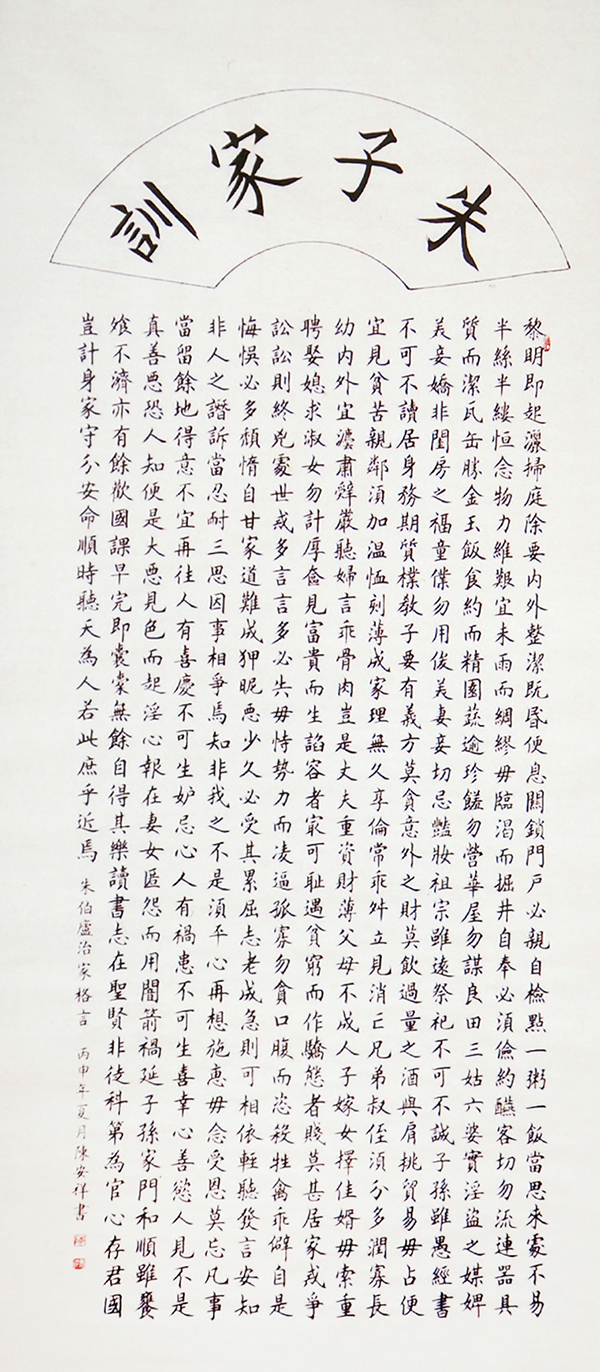 朱子家訓
黎明即起灑掃庭除要内外整潔既昏便息關鎖門戶必親自檢點一粥一飯當思来處不易
半絲半縷恒念物力維艱宜未雨而綢繆毋臨渴而掘井自奉必須儉約醼客切勿流連器具
質而潔瓦缶勝金玉飯食約而精園蔬逾珍饈勿營華屋勿謀良田三姑六婆實淫盜之媒婢
美妾嬌非閨房之福童僕勿用俊美妻妾切忌豔妝祖宗雖遠祭祀不可不誠子孫雖愚經書
不可不讀居身務期質樸敎子要有義方莫貪意外之財莫飲過量之酒與肩挑貿易毋占便
宜見貧苦親鄰須加温恤刻薄成家理無久享倫常乖舛立見消亡兄弟叔侄須分多潤寡長
幼内外宜濃肅辭嚴聽婦言乖骨肉豈是丈夫重資財薄父母不成人子嫁女擇佳婿毋索重
聘娶媳求淑女勿計厚奩見富貴而生諂容者最可恥遇貧窮而作驕態者賤莫甚居家戒爭
訟訟則終兇處世戒多言言多必失毋恃勢力而凌逼孤寡勿貪口腹而恣殺牲禽乖僻自是
悔悞必多頹惰自甘家道難成狎昵惡少久必受其累屈志老成急則可相依輕聽發言安知
非人之譖訴當忍耐三思因事相爭焉知非我之不是須平心再想施惠毋念受恩莫忘凡事
當留餘地得意不宜再往人有喜慶不可生妒忌心人有禍患不可生喜幸心善慾人見不是
真善惡恐人知便是大惡見色而起淫心報在妻女匿怨而用闇箭禍延子孫家門和順雖饔
飧不濟亦有餘歡國課早完即囊橐無餘自得其樂讀書志在聖賢非徒科第為官心存君國
豈計身家守分安命順時聽天為人若此庶乎近焉 朱伯廬治家格言 丙申年夏月陳安祥書